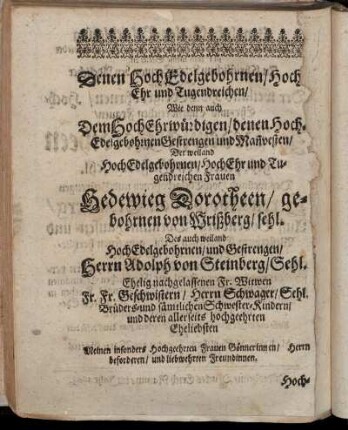 Denen Hoch Edelgebohrnen/ Hoch
Ehr und Tugendreichen/
Wie denn auch
Dem Hoch Ehrwürdigen/ denen Hoch-
Edelgebohrnen Gestrengen und Mañvesten/
Der weiland
Hoch Edelgebohrnen/ Hoch Ehr und Tu-
gendreichen Frauen
Hedewieg Dorotheen/ ge-
bohrnen von Wrißberg/ sehl.
Des auch weiland
Hoch Edelgebohrnen/ und Gestrengen/
Herrn Adolph von Steinberg/ Sehl.
Ehelig nachgelassenen Fr. Witwen
Fr. Fr. Geschwistern/ Herrn Schwager/ Sehl.
Brüders und sämtlichen Schwester-Kindern/
und deren allerseits hochgeehrten
Eheliebsten
Meinen insonders Hochgeehrten Frauen Gönnerinnen/ Herrn
beforderen/ und liebwehrten Freundinnen.
Hoch-